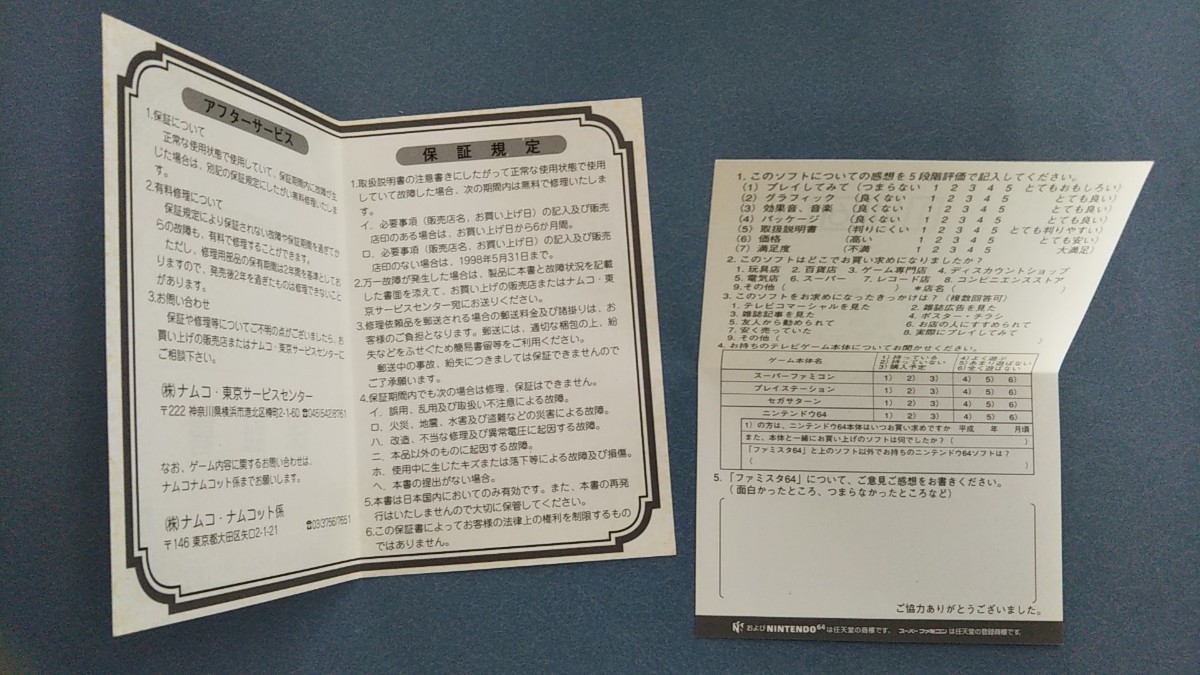 アフターサービス
1.保証について
正常な使用状態で使用していて、保証期間内に故障が生
じた場合は、別記の保証規定にしたがい無料修理いたしま
す。
2.有料修理について
保証規定により保証されない故障や保証期間を過ぎてか
らの故障も、有料で修理することができます。
ただし、修理用部品の保有期間は2年間を基準としてお
りますので、発売後2年を過ぎたものは修理できないこと
があります。
3.お問い合わせ
保証や修理等についてご不明の点がございましたら、お
買い上げの販売店またはナムコ・東京サービスセンターに
ご相談下さい。
㈱ナムコ・東京サービスセンター
〒222 神奈川県横浜市港北区樽町2-1-60 ☎045(542)8761
なお、ゲーム内容に関するお問い合わせは、
ナムコナムコット係までお願いします。
㈱ナムコ・ナムコット係
〒146 東京都大田区矢口2-1-21 ☎03(3756)7651
保証規定
1.取扱説明書の注意書きにしたがって正常な使用状態で使用
していて故障した場合、次の期間内は無料で修理いたしま
す。
イ．必要事項（販売店名、お買い上げ日）の記入及び販売
店印のある場合は、お買い上げ日から6か月間。
ロ．必要事項（販売店名、お買い上げ日）の記入及び販売
店印のない場合は、1998年5月31日まで。
2.万一故障が発生した場合は、製品に本書と故障状況を記載
した書面を添えて、お買い上げの販売店またはナムコ・東
京サービスセンター宛にお送りください。
3.修理依頼品を郵送される場合の郵送料金及び諸掛りは、お
客様のご負担となります。郵送には、適切な梱包の上、紛
失などをふせぐため簡易書留等をご利用ください。
郵送中の事故、紛失につきましては保証できませんので
ご了承願います。
4.保証期間内でも次の場合は修理、保証はできません。
イ．誤用、乱用及び取扱い不注意による故障。
ロ．火災、地震、水害及び盗難などの災害による故障。
ハ．改造、不当な修理及び異常電圧に起因する故障。
ニ．本品以外のものに起因する故障。
ホ．使用中に生じたキズまたは落下等による故障及び損傷。
ヘ．本書の提出がない場合。
5.本書は日本国内においてのみ有効です。また、本書の再発
行はいたしませんので大切に保管してください。
6.この保証書によってお客様の法律上の権利を制限するもの
ではありません。
1．このソフトについての感想を5段階評価で記入してください。
(1) プレイしてみて（つまらない 1 2 3 4 5 とてもおもしろい）
(2) グラフィック （良くない 1 2 3 4 5 とても良い）
(3) 効果音、音楽 （良くない 1 2 3 4 5 とても良い）
(4) パッケージ （良くない 1 2 3 4 5 とても良い）
(5) 取扱説明書 （判りにくい 1 2 3 4 5 とても判りやすい）
(6) 価格 （高い 1 2 3 4 5 とても安い）
(7) 満足度 （不満 1 2 3 4 5 大満足）
2．このソフトはどこでお買い求めになりましたか？
1．玩具店 2．百貨店 3．ゲーム専門店 4．ディスカウントショップ
5．電気店 6．スーパー 7．レコード店 8．コンビニエンスストア
9．その他（ ） ＊店名（ ）
3．このソフトをお求めになったきっかけは？（複数回答可）
1．テレビコマーシャルを見た 2．雑誌広告を見た
3．雑誌記事を見た 4．ポスター・チラシ
5．友人から勧められて 6．お店の人にすすめられて
7．安く売っていた 8．実際にプレイしてみて
9．その他（ ）
4．お持ちのテレビゲーム本体についてお聞かせください。
ゲーム本体名 1）持っている 4）よく遊ぶ
2）持っていない 5）あまり遊ばない
3）購入予定 6）全く遊ばない
スーパーファミコン 1） 2） 3） 4） 5） 6）
プレイステーション 1） 2） 3） 4） 5） 6）
セガサターン 1） 2） 3） 4） 5） 6）
ニンテンドウ64 1） 2） 3） 4） 5） 6）
1）の方は、ニンテンドウ64本体はいつお買い求めですか 平成 年 月頃
また、本体と一緒にお買い上げのソフトは何でしたか？（ ）
「ファミスタ64」と上のソフト以外でお持ちのニンテンドウ64ソフトは？
（ ）
5．「ファミスタ64」について、ご意見ご感想をお書きください。
（面白かったところ、つまらなかったところなど）
ご協力ありがとうございました。
およびNINTENDO64は任天堂の商標です。 スーパーファミコンは任天堂の登録商標です。